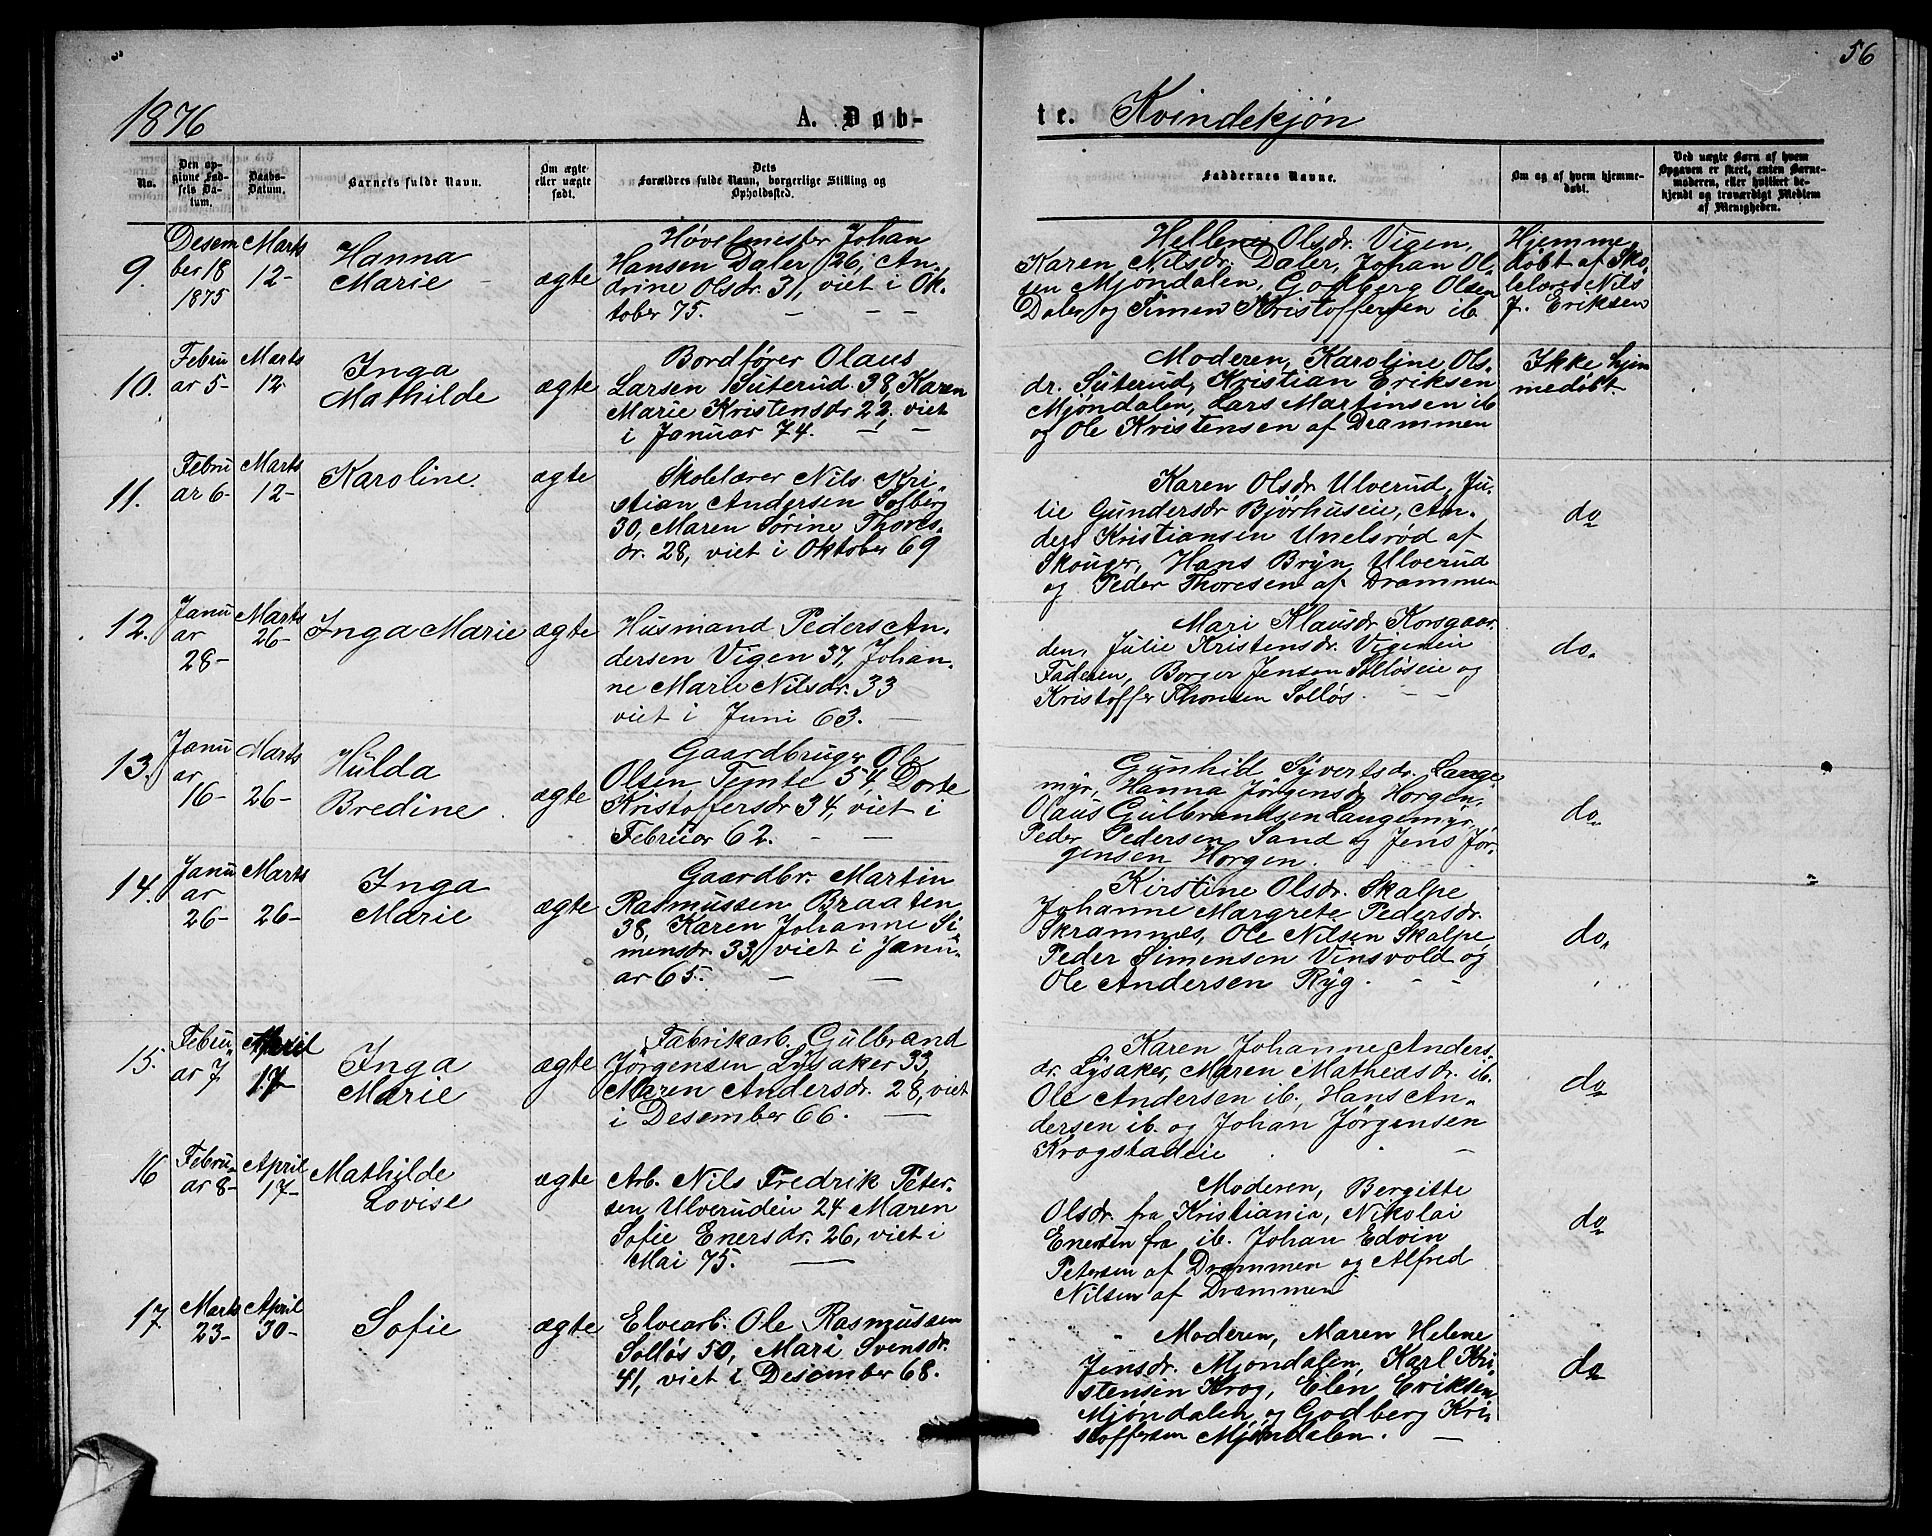 56
1876 A. Døb-te. Kvindekjøn
No.
Den op-
givne Fød-
sels Da-
tum.
Daabs-
Datum.
Barnets fulde Navn.
Om ægte
eller uægte
født.
Dets
Forældres fulde Navn, borgerlige Stilling og
Opholdssted.
Faddernes Navne.
Om og af hvem hjemme-
døbt.
Ved uægte Børn af hvem
Opgaven er skeet, enten Barne-
moderen, eller hvilket be-
kjendt og troværdigt Medlem
af Menigheden.
9.
Desem
ber 18
1875
Marts
12-
Hanna
Marie -
ægte
Høvelmester Johan
Hansen Daler 26, An-
drine Olsdr. 31, viet i Ok-
tober 75. - - -
Hellene Olsdr. Vigen,
Karen Nilsdr. Daler, Johan Ol-
sen Mjøndalen, Godberg Olsen
Daler og Simen Kristoffersen ib.
Hjemme
døbt af Sko-
lelærer Nils
J. Eriksen
10.
Febru
ar 5-
Marts
12
Inga
Mathilde
ægte
Bordfører Olaus
Larsen Suterud 38, Karen
Marie Kristensdr 22, viet
i Januar 74. - -
Moderen, Karoline Ols-
dr. Suterud, Kristian Eriksen
Mjøndalen, Lars Martinsen ib
og Ole Kristensen af Drammen
Ikke hjem
medøbt
11.
Febru
ar 6-
Marts
12-
Karoline
ægte
Skolelærer Nils Kri-
stian Andersen Solberg
30, Maren Sørine Thores-
dr. 28, viet i Oktober 69
Karen Olsdr Ulverud, Ju-
lie Gundersdr Bjørhuseie, An-
ders Kristiansen Unelsrød af
Skouger, Hans Bryn Ulverud
og Peder Thoresen af Drammen
do
12.
Janu
ar
28-
Marts
26-
Inga Marie
ægte
Husmand Peders An-
dersen Vigen 37, Johan-
ne Marie Nilsdr. 33
viet i Juni 63. -
Mari Klausdr Korsgaar-
den, Julie Kristensdr. Vigeneie
Faderen, Borger Jensen Solløseie og
Kristoffer Thorsen Solløs. - -
do.
13.
Janu
ar
16-
Marts
26-
Hulda
Bredine
ægte
Gaardbruger Ole
Olsen Temte 54, Dorte
Kristoffersdr 34, viet i
Februar 62. - -
Gunhild Syvertsdr. Lange
myr, Hanna Jørgensdr Horgen,
Olaus Gulbrandsen Langemyr,
Peder Pedersen Sand og Jens Jør-
gensen Horgen.
do.
14.
Janu
ar
26-
Marts
26-
Inga
Marie
ægte
Gaardbr. Martin
Rasmussen Braaten
38, Karen Johanne Si-
mensdr. 33, viet i Janu-
ar 65. - -
Kirstine Olsdr. Skalpe
Johanne Margrete Pedersdr.
Skramnes, Ole Nilsen Skalpe,
Peder Simensen Vinsvold og
Ole Andersen Ryg. - -
do.
15.
Febru
ar 7
April
17
Inga
Marie
ægte
Fabrikarb. Gulbrand
Jørgensen Lysaker 33,
Maren Andersdr. 28, viet
i Desember 66. -
Karen Johanne Anders
dr. Lysaker, Maren Matheasdr. ib.
Ole Andersen ib., Hans An-
dersen ib. og Johan Jørgensen
Krogstadeie -
do
16
Febru-
ar 8-
April
17-
Mathilde
Lovise
ægte
Arb. Nils Fredrik Peter-
sen Ulverudeie 24 Maren
Sofie Enersdr. 26, viet i
Mai 75. -
Moderen, Bergitte
Olsdr. fra Kristiania, Nikolai
Enersen fra ib. Johan Edvin
Petersen af Drammen og Alfred
Nilsen af Drammen
do
17
Marts
23-
April
30-
Sofie
ægte
Elvearb. Ole Rasmussen
Solløs 50, Mari Svensdr.
41, viet i Desember 68.
Moderen, Maren Helene
Jensdr. Mjøndalen, Karl Kri-
stensen Krog, Elen Eriksen
Mjøndalen og Godberg Kri-
stoffersen Mjøndalen. -
do